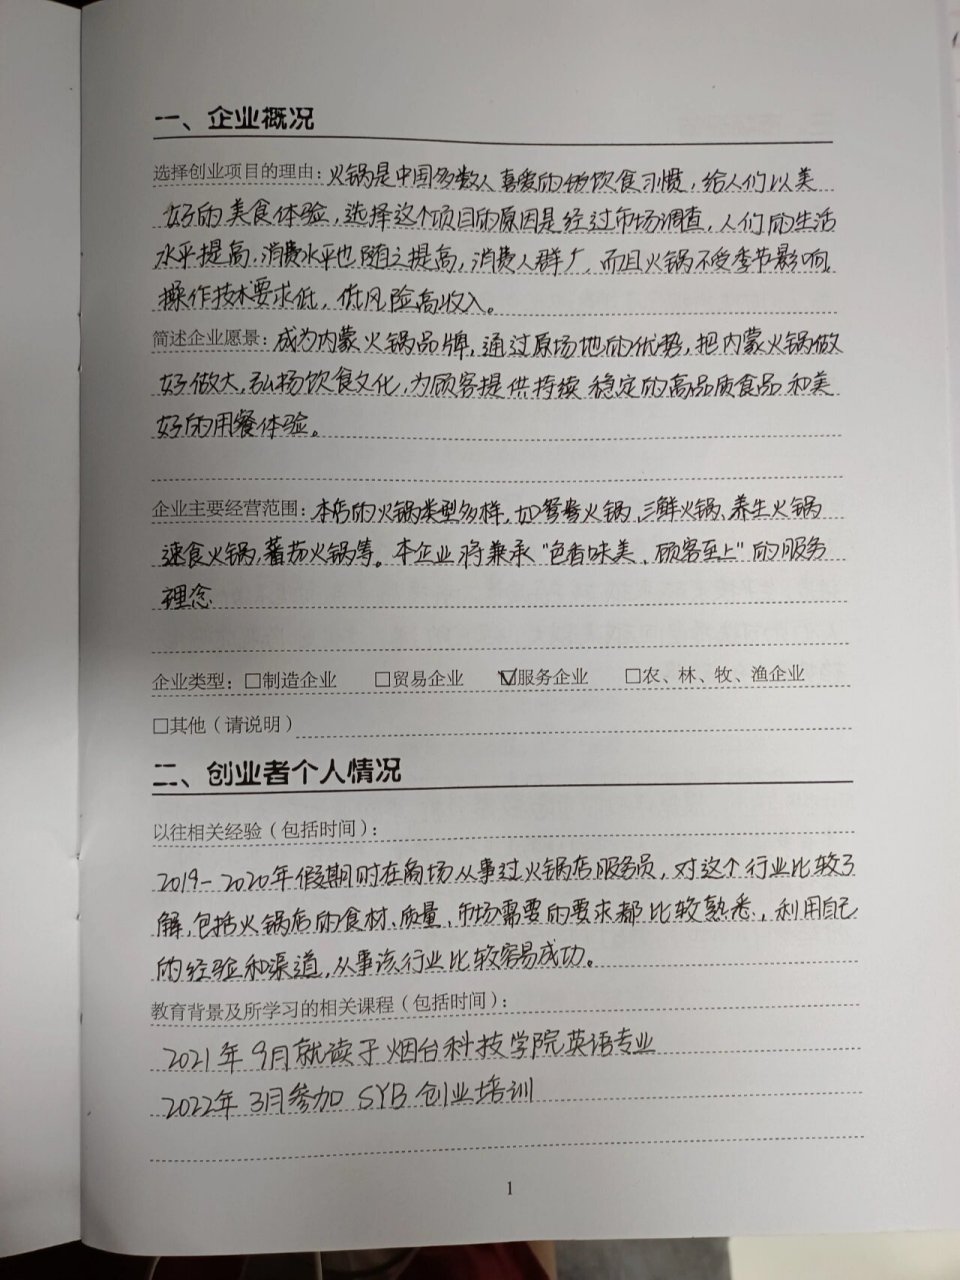 一、企业概况
选择创业项目的理由：火锅是中国多数人喜爱的饮食习惯，给人们以美
好的美食体验，选择这个项目的原因是经过市场调查，人们的生活
水平提高，消费水平也随之提高，消费人群广，而且火锅不受季节影响，
操作技术要求低，低风险高收入。
简述企业愿景：成为内蒙火锅品牌，通过原场地的优势，把内蒙火锅做
好做大，弘扬饮食文化，为顾客提供持续稳定的高品质食品和美
好的用餐体验。
企业主要经营范围：本店的火锅类型多样，如鸳鸯火锅、三鲜火锅、养生火锅
速食火锅，蕃茄火锅等。本企业将兼承“色香味美、顾客至上”的服务
理念
企业类型：□制造企业 □贸易企业 ☑服务企业 □农、林、牧、渔企业
□其他（请说明）
二、创业者个人情况
以往相关经验（包括时间）：
2019-2020年假期时在商场从事过火锅店服务员，对这个行业比较了
解，包括火锅店的食材、质量、市场需要的要求都比较熟悉，利用自己
的经验和渠道，从事该行业比较容易成功。
教育背景及所学习的相关课程（包括时间）：
2021年9月就读于烟台科技学院英语专业
2022年3月参加SYB创业培训
1